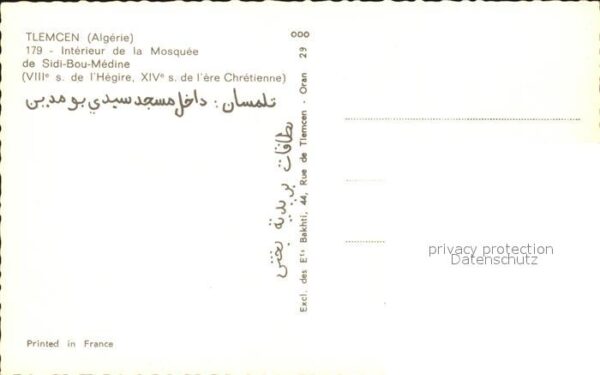 TLEMCEN (Algérie)
179 - Intérieur de la Mosquée
de Sidi-Bou-Médine
(VIIIe s. de l'Hégire, XIVe s. de l'ère Chrétienne)
تلمسان: داخل مسجد سيدي بومدين
بطاقات بريدية بختي
Excl. des Ets Bakhti, 44, Rue de Tlemcen - Oran 29
privacy protection
Datenschutz
Printed in France